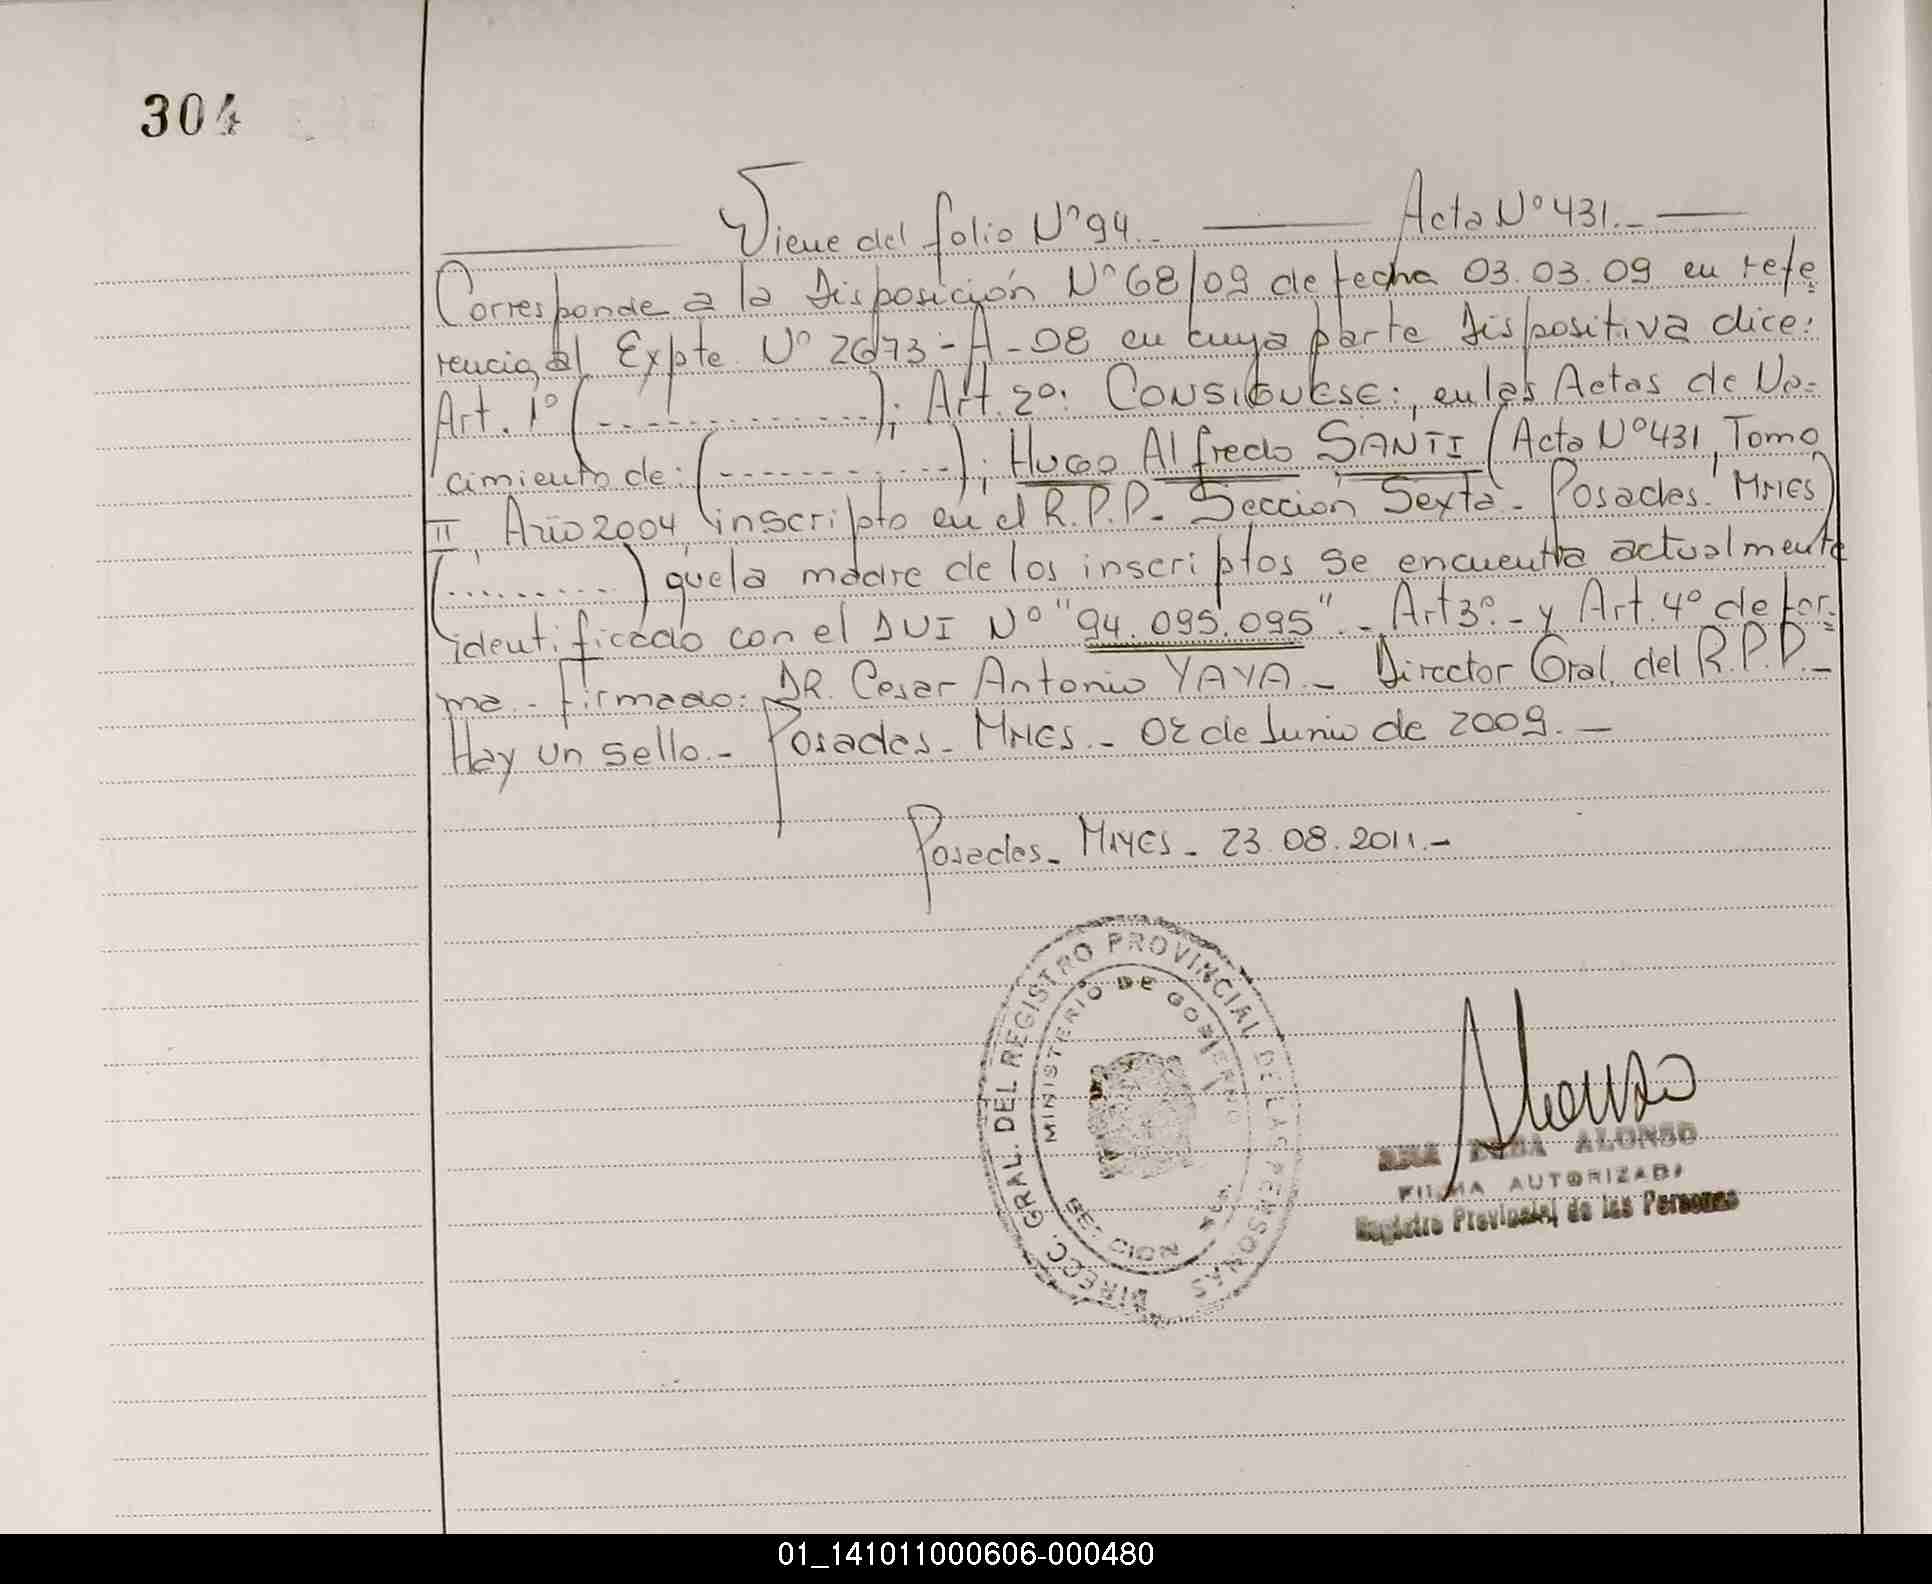 304
Viene del folio Nº 94.- Acta Nº 431.-
Corresponde a la Disposición Nº 68/09 de fecha 03.03.09 en refe
rencia al Expte Nº 2673-A-08 en cuya parte Dispositiva dice:
Art. 1º (- - - - - - - - - -); Art. 2º: CONSIGUESE:, en las Actas de Na-
cimiento de: (- - - - - - - - - -); Hugo Alfredo SANTI (Acta Nº 431, Tomo
II, Año 2004, inscripto en el R.P.P. - Sección Sexta - Posadas. Mnes)
(..........) que la madre de los inscriptos se encuentra actualmente
identificado con el DNI Nº "94.095.095".- Art 3º - y Art. 4º de for-
ma.- Firmado: DR. Cesar Antonio YAYA.- Director Gral. del R.P.P.-
Hay un sello.- Posadas.- Mnes.- 02 de Junio de 2009.-
Posadas.- Mnes.- 23.08.2011.-
DIRECC. GRAL. DEL REGISTRO PROVINCIAL DE LAS PERSONAS
MINISTERIO DE GOBIERNO
Alonso
ALONSO
FIRMA AUTORIZADA
Registro Provincial de las Personas
01_141011000606-000480